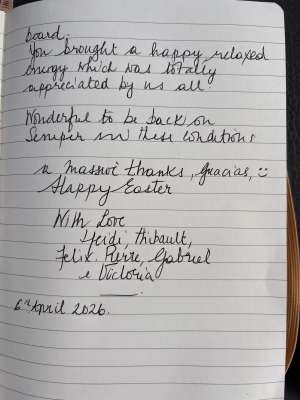 board.
You brought a happy, relaxed
energy which was totally
appreciated by us all
Wonderful to be back on
Semper in these conditions
a massive thanks, gracias, :)
Happy Easter
With Love
Heidi, Thibault,
Felix, Pierre, Gabriel
e Victoria
6th April 2026.